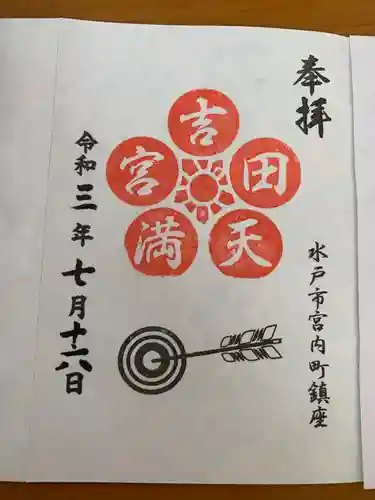 奉拝
水戸市宮内町鎮座
吉田天満宮
令和三年七月十八日